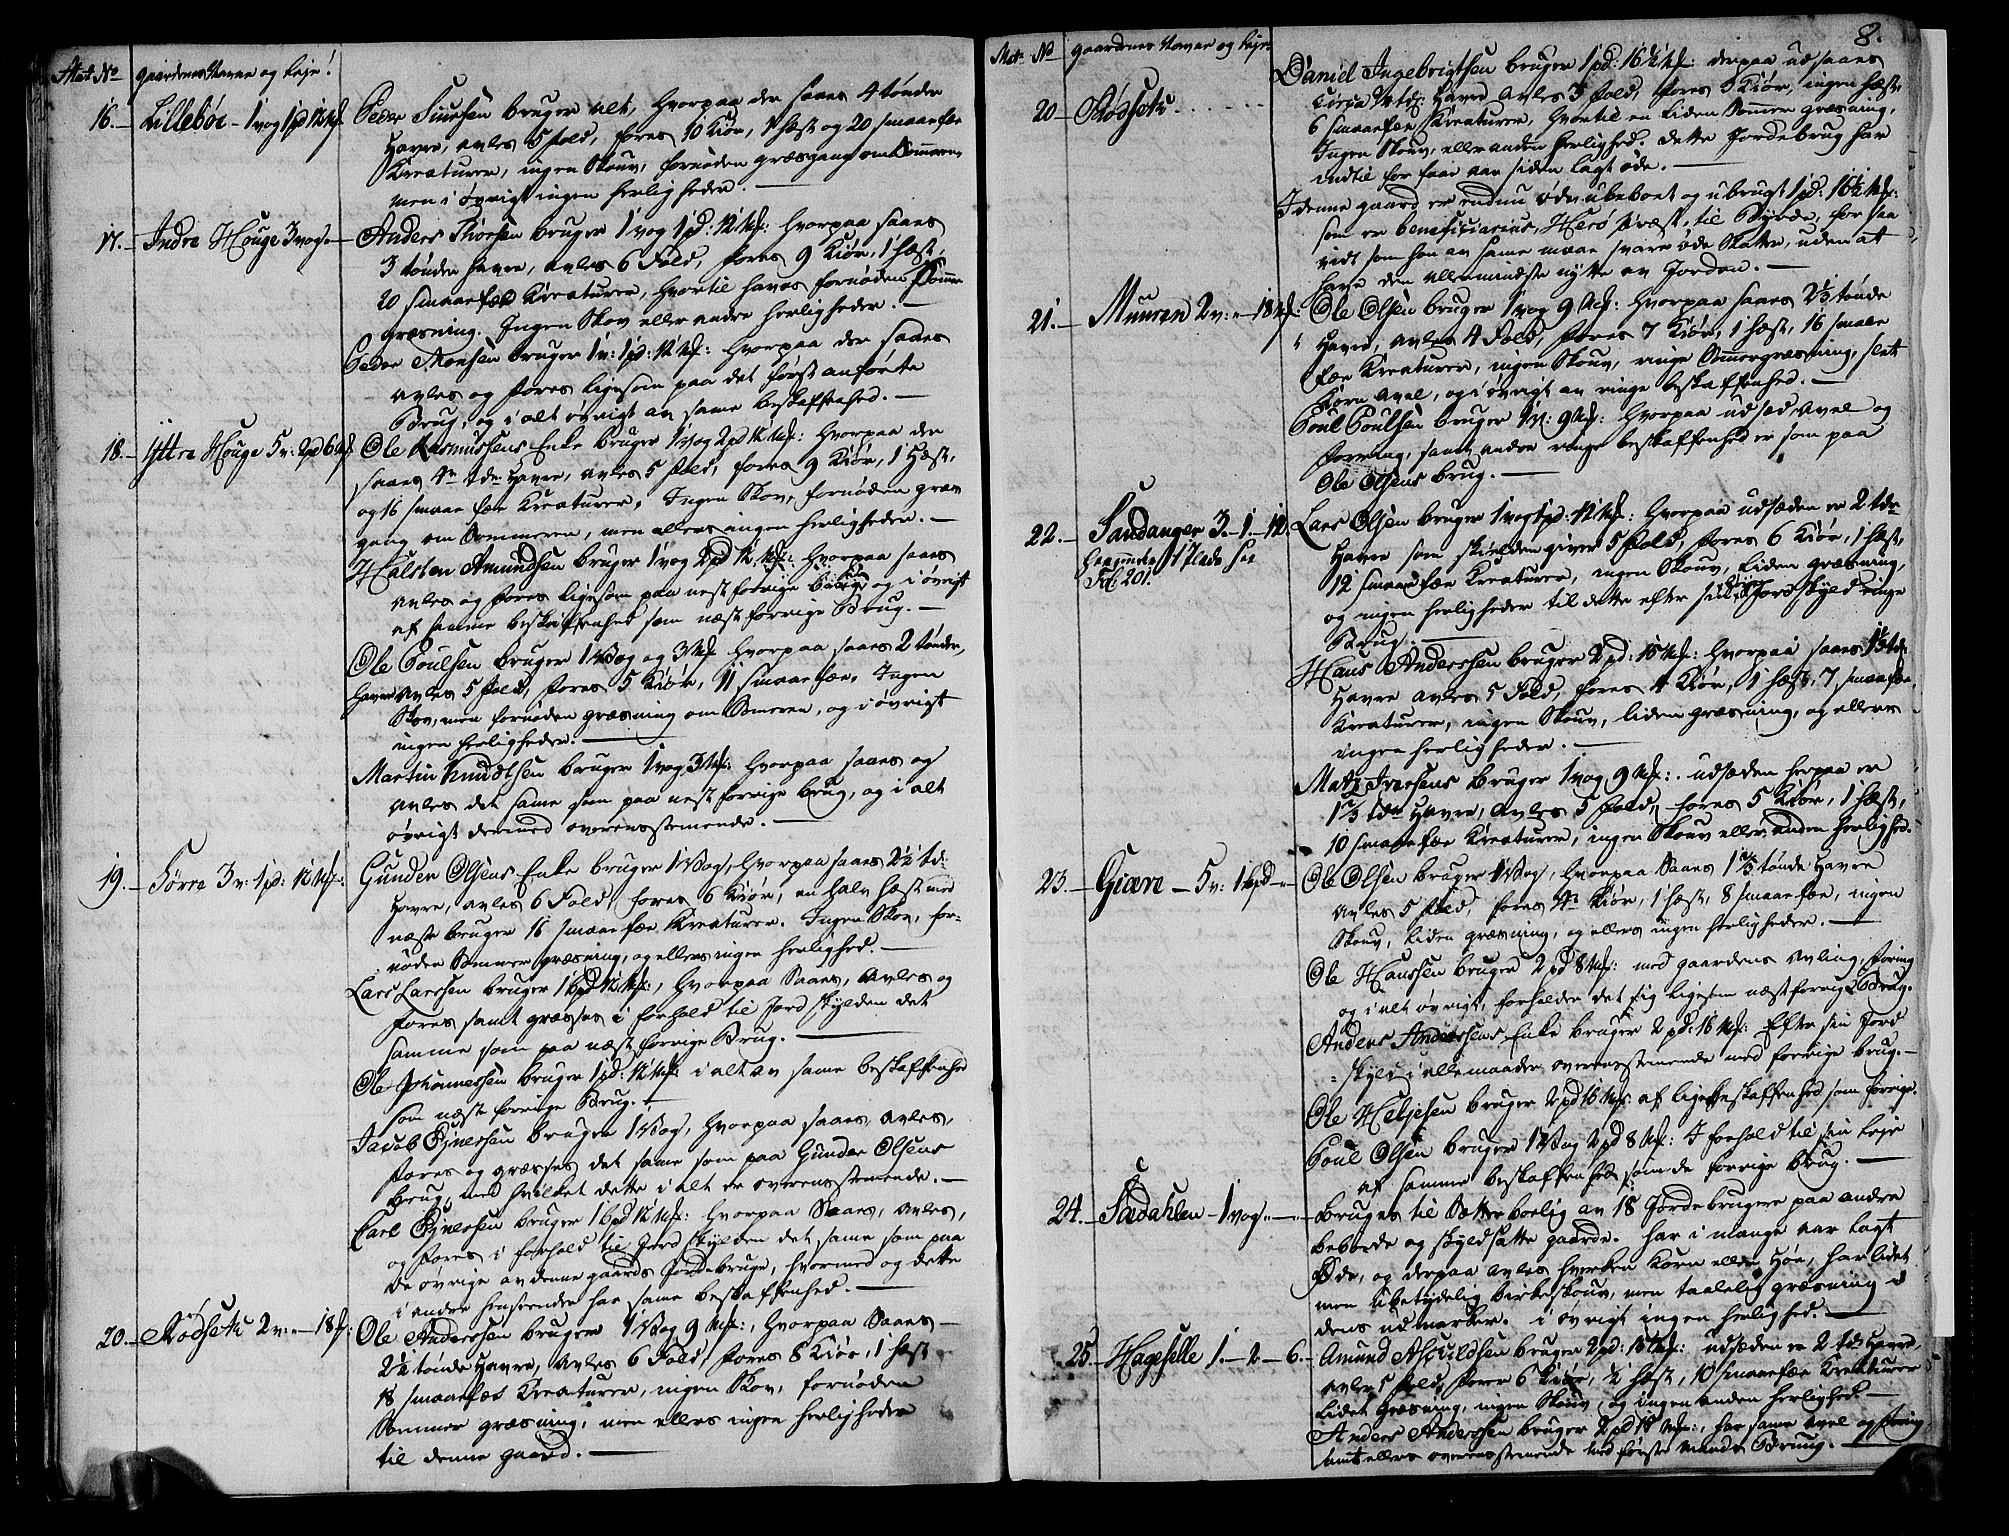 Mat: No Gaardenes Navne og leje!
16. Lillebøe - 1 vog 1 pd 12 Mk
Peder Siursen bruger alt, hvorpaa der saaes 4 tønder
Havre, avles 5 fold, fores 10 Kiør, 1 Hæst og 20 smaae fæe
Kreaturer, ingen Skouv, fornøden græsgang om Sommeren,
men i øvrigt ingen herligheder.
17. Indre Houge 3 vog
Anders Thorsen bruger 1 vog 1 pd: 12 Mk: hvorpaa saaes
3 tønder havre, avles 6 Fold, fores 9 Kiør, 1 hæst,
20 smaae fæe Kreaturer, hvortil haves fornøden Sommer
græsning. Ingen Skov eller andre herligheder.
Peder Monsen bruger 1 v: 1 pd: 12 Mk: hvorpaa der saaes
avles og fores ligesom paa det først anførte
Brug, og i alt øvrigt av samme beskaffenhed.
18. Yttre Houge 5 v: 2 pd 6 Mk
Ole Rasmussens Enke bruger 1 vog 2 pd 12 Mk: hvorpaa der
saaes 4 tdr Havre, avles 5 fold, fores 9 Kiør, 1 Hæst,
og 16 smaae fæe Kreaturer, Ingen Skov, fornøden græs
gang om Sommeren, men ellers ingen herligheder.
Halsten Amundsen bruger 1 vog 2 pd 12 Mk: hvorpaa saaes
avles og fores ligesom paa nest forrige brug og i øvrigt
af samme beskaffenhed som næst forrige Brug.
Ole Poulsen bruger 1 Vog og 3 Mk hvorpaa saaes 2 tønder,
havre avles 5 fold, fores 5 Kiør, 11 smaae fæe, Ingen
Skov, men fornøden græsning om Sommeren, og i øvrigt
ingen herligheder.
Martin Knudtsen bruger 1 vog 3 Mk: hvorpaa saaes og
avles det samme som paa nest forrige brug, og i alt
øvrigt dermed overensstemende.
19. Tørre 3 v: 1 pd: 12 Mk:
Gunder Olsens Enke bruger 1 Vog, hvorpaa saaes 2½ td:
Havre, avles 6 Fold, fores 6 Kiør, en halv hæst med
næste bruger 16 smaae fæe Kreaturer. Ingen Skov, for-
nøden Sommer græsning, og ellers ingen herlighed.
Lars Larssen bruger 1 bpd 12 Mk:, hvorpaa Saaes, avles og
fores samt græsses i forhold til Jord skylden det
samme som paa næst forrige Brug.
Ole Johannessen bruger 1 pd: 12 Mk: i alt av samme beskaffenhed
som næst forrige Brug.
Jacob Ejnersen bruger 1 Vog, hvorpaa saaes, avles,
fores og græsses det samme som paa Gunder Olsens
brug, med hvilket dette i alt er overensstemende.
Carl Ejnersen bruger 1 bpd 12 Mk: hvorpaa Saaes, avles,
og fores i forhold til Jord skylden det samme som paa
de øvrige av denne gaards Jordebruge, hvormed og dette
i andre henseender har samme beskaffenhed.
20. Rødseth 2 v: „ 18 Mk:
Ole Anderssen bruger 1 Vog 9 Mk:, hvorpaa Saaes
2½ tønde Havre, avles 6 Fold, fores 8 Kiør, 1 hæst
18 smaae fæe Kreaturer, ingen Skov, fornøden
Sommer græsning, men ellers ingen herligheder
til denne gaard.
8.
Mat: No Gaardenes Navne og leje
20 Rødseth
Daniel Ingebrigtsen bruger 1 pd: 16½ Mk: derpaa udsaaes
circa 2 td: Havre avles 3 fold, fores 3 Kiør, ingen hæst,
6 smaae fæe Kreaturer, hvortil en liden Sommer græsning,
Ingen Skouv, eller anden herlighed. dette Jordebrug har
indtil for faae aar siden lagt øde.
I denne gaard er endnu øde ubeboet og ubrugt 1 pd: 16½ Mk:
som er beneficiarius, Herø Præst, til Bynde, for saa
vidt som han av samme maae svare øde Skatter, uden at
have den allermindste nytte av Jorden.
21. Muuren 2 v: „ 18 Mk:
Ole Olsen bruger 1 vog 9 Mk: hvorpaa saaes 2⅓ tønde
Havre, avles 4 Fold, fores 7 Kiør, 1 hæst, 16 smaae
fæe Kreaturer, ingen Skouv, ringe Sommergræsning, slet
Korn avel, og i øvrigt av ringe beskaffenhed.
Poul Poulsen bruger 1 v: 9 Mk: hvorpaa udsæd, avel og
foering, samt anden ringe beskaffenhed er som paa
Ole Olsens brug.
22. Sandanger 3.-1.-12.
Lars Olsen bruger 1 vog 1 pd: 12 Mk: hvorpaa udsæden er 2 tdr
Havre som skielden giver 5 fold, fores 6 Kiør, 1 hæst,
12 smaae fæe Kreaturer, ingen Skouv, liden græsning,
og ingen herligheder til dette efter sin Jordskyld ringe
Brug.
Hans Anderssen bruger 2 pd: 15 Mk: hvorpaa saaes 1½ td:
Havre avles 5 Fold, fores 4 Kiør, 1 hæst, 7 smaae fæe
Kreaturer, ingen Skouv, liden græsning, og ellers
ingen herligheder.
Matz Iversens bruger 1 vog 9 Mk: udsæden herpaa er
1⅔ tdr Havre, avles 5 fold, fores 5 Kiør, 1 hæst,
10 smaae fæe Kreaturer, ingen Skouv eller anden herlighed.
23. Giøre - 5 v: 1 bpd „
Ole Olsen bruger 1 Vog, hvorpaa Saaes 1⅔ tønde Havre
avles 5 fold, fores 4 Kiør, 1 hæst, 8 smaae fæe, ingen
Skouv, liden græsning, og ellers ingen herligheder.
Ole Hanssen bruger 2 pd 8 Mk: med gaardens avling, foring
og i alt øvrigt, forholder det sig ligesom næst forrige Brug.
Anders Anderssens Enke bruger 2 pd: 16 Mk: Efter sin Jord
skyld i alle maader overensstemende med forrige brug.
Ole Helsesen bruger 2 pd 16 Mk: af lige beskaffenhed som forrige.
Poul Olsen bruger 1 Vog 2 pd 8 Mk: I forhold til sin leje
af samme beskaffenhed som de forrige Brug.
24. Sædahlen - 1 vog „
bruges til Sætterboelig av 18 Jordebrugere paa andre
beboede og skyldsatte gaarde. har i mange aar lagt
Øde, og derpaa avles hverken Korn eller Høe, har lidet
men ubetydelig birkeskouv, men taalelig græsning i
dens udmarker. i øvrigt ingen herlighed.
25. Hageselle 1.-2-6.
Amund Asguildsen bruger 2 pd: 15 Mk: udsæden er 2 tdr Havre,
avles 5 fold, fores 6 Kiør, ½ hæst, 10 smaae fæe Kreaturer
Lidet Græsning, ingen Skouv, og ingen anden herlighed.
Anders Anderssen bruger 2 pd 15 Mk:, har samme avel og foring
samt ellers overensstemende med første mands Brug.